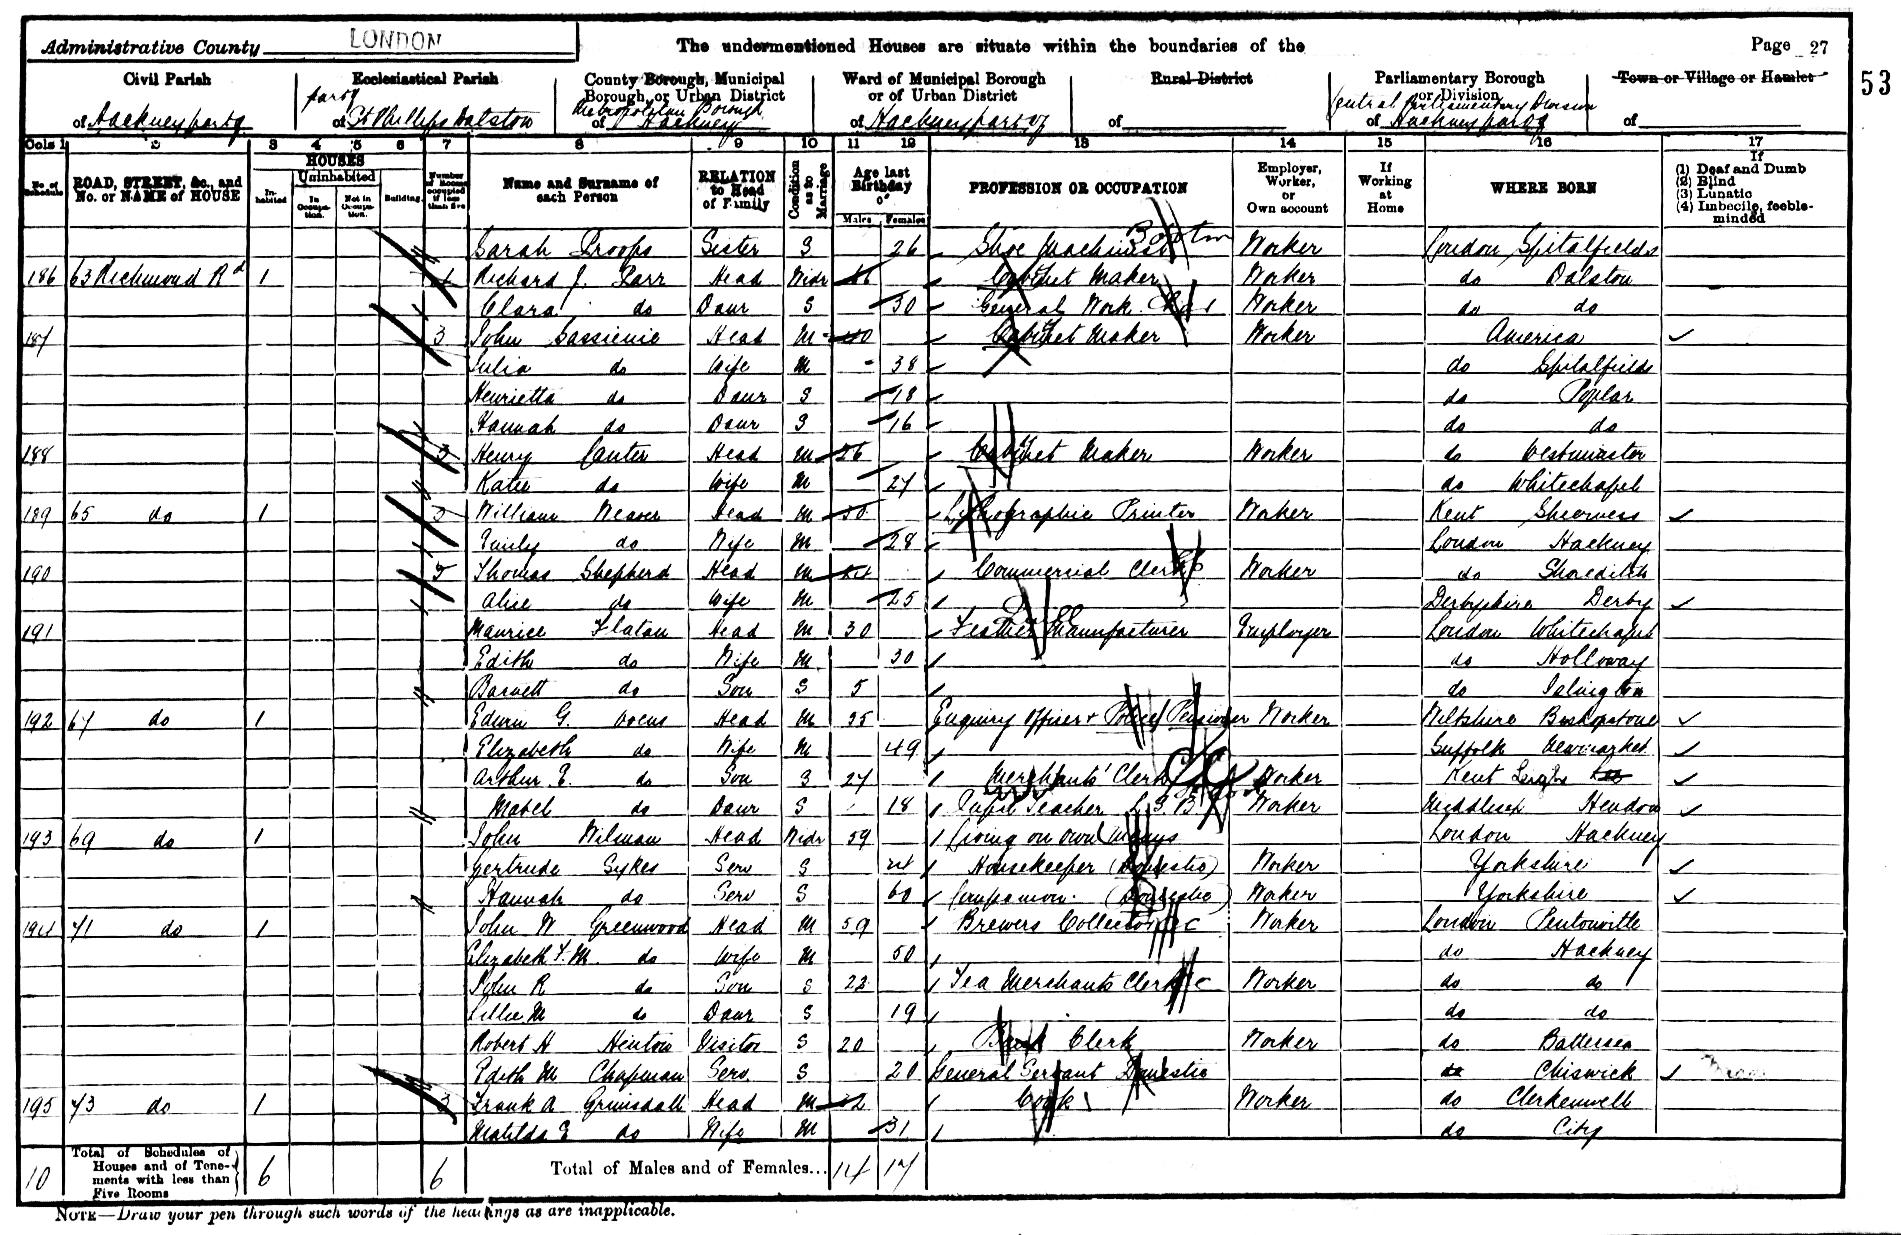 Administrative County LONDON The undermentioned Houses are situate within the boundaries of the Page 27
53
Civil Parish Ecclesiastical Parish County Borough, Municipal Borough, or Urban District Ward of Municipal Borough or of Urban District Rural District Parliamentary Borough or Division Town or Village or Hamlet
of Hackney part of part of St Phillips Dalston Metropolitan Borough of Hackney of Hackney part of of Central Parliamentary Division of Hackney part of of
Cols 1 2 3 4 5 6 7 8 9 10 11 12 13 14 15 16 17
No. of Schedule ROAD, STREET, &c., and No. or NAME of HOUSE HOUSES Inhabited Uninhabited In Occupation. Not in Occupation. Building. Number of Rooms occupied if less than five Name and Surname of each Person RELATION to Head of Family Condition as to Marriage Age last Birthday of Males Females PROFESSION OR OCCUPATION Employer, Worker, or Own account If Working at Home WHERE BORN If (1) Deaf and Dumb (2) Blind (3) Lunatic (4) Imbecile, feeble-minded
Sarah Proops Sister S 26 Shoe Machinist Worker London Spitalfields
186 63 Richmond Rd 1 Richard J. Parr Head Widr Cabinet Maker Worker do Dalston
Clara do Daur S 30 General Work Worker do do
187 3 John Sassienie Head M 40 Cabinet Maker Worker America
Julia do Wife M 38 do Spitalfields
Henrietta do Daur S 18 do Poplar
Hannah do Daur S 16 do do
188 3 Henry Canter Head M 26 Cabinet Maker Worker do Westminster
Kate do Wife M 27 do Whitechapel
189 65 do 1 3 William Weaver Head M 30 Lithographic Printer Worker Kent Sheerness
Emily do Wife M 28 London Hackney
190 Thomas Shepherd Head M Commercial Clerk Worker do Shoreditch
Alice do Wife M 25 Derbyshire Derby
191 Maurice Flatau Head M 30 Feather Manufacturer Employer London Whitechapel
Edith do Wife M 30 do Holloway
Barnett do Son S 5 do Islington
192 67 do 1 Edwin G. Head M 55 Enquiry Officer & Police Pensioner Worker Wiltshire Bishopstone
Elizabeth do Wife M 49 Suffolk Newmarket
Arthur E. do Son S 27 Merchants' Clerk Worker Kent
Mabel do Daur S 18 Pupil Teacher L S B Worker Middlesex Hendon
193 69 do 1 John Wilman Head Widr 59 Living on own means London Hackney
Gertrude Sykes Serv S Housekeeper (Domestic) Worker Yorkshire
Hannah do Serv S 60 Companion (Domestic) Worker Yorkshire
194 71 do 1 John W Greenwood Head M 59 Brewers Collector Worker London Pentonville
Elizabeth F. M. do Wife M 50 do Hackney
John R do Son S 22 Tea Merchants Clerk Worker do do
Lillie M do Daur S 19 do do
Robert H Hinton Visitor S 20 Bank Clerk Worker do Battersea
Edith M Chapman Serv. S 20 General Servant Domestic do Chiswick
195 73 do 1 3 Frank A Grimsdall Head M Cook Worker do Clerkenwell
Matilda E do Wife M 31 do City
10 Total of Schedules of Houses and of Tenements with less than Five Rooms 6 6 Total of Males and of Females... 14 17
NOTE—Draw your pen through such words of the headings as are inapplicable.